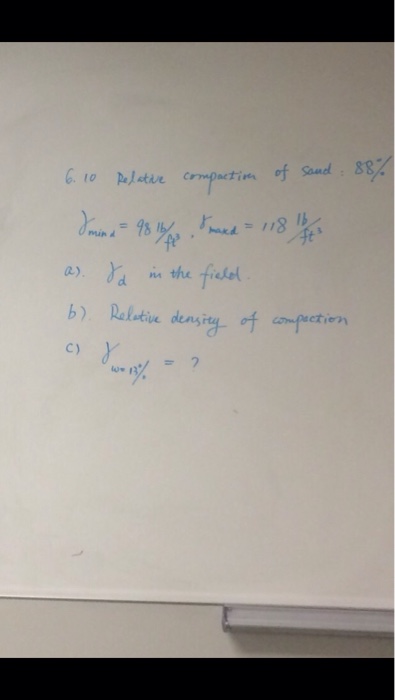 6.10 Relative compaction of sand : 88%
γmin d = 98 lb/ft³ , γmax d = 118 lb/ft³
a). γd in the field.
b) Relative density of compaction
c) γw=13% = ?